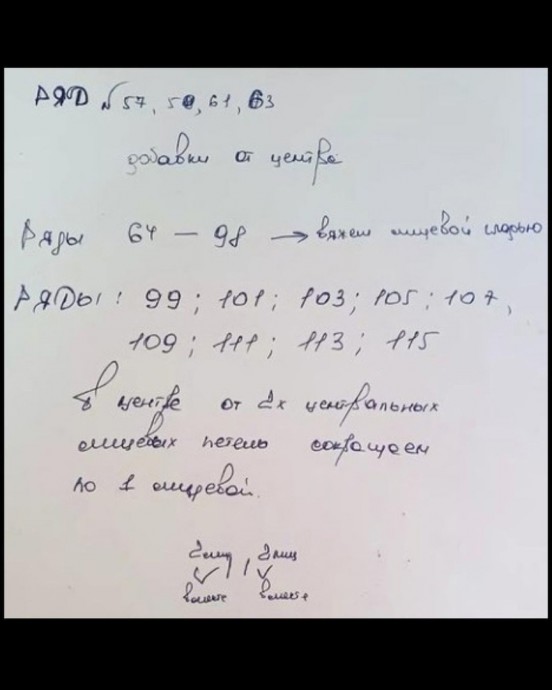 РЯД № 57, 59, 61, 63
добавки от центра
Ряды 64 — 98 → вяжем лицевой гладью
РЯДЫ: 99; 101; 103; 105; 107,
109; 111; 113; 115
В центре от 2х центральных
лицевых петель сокращаем
по 1 лицевой.
2 лиц 2 лиц
вместе вместе